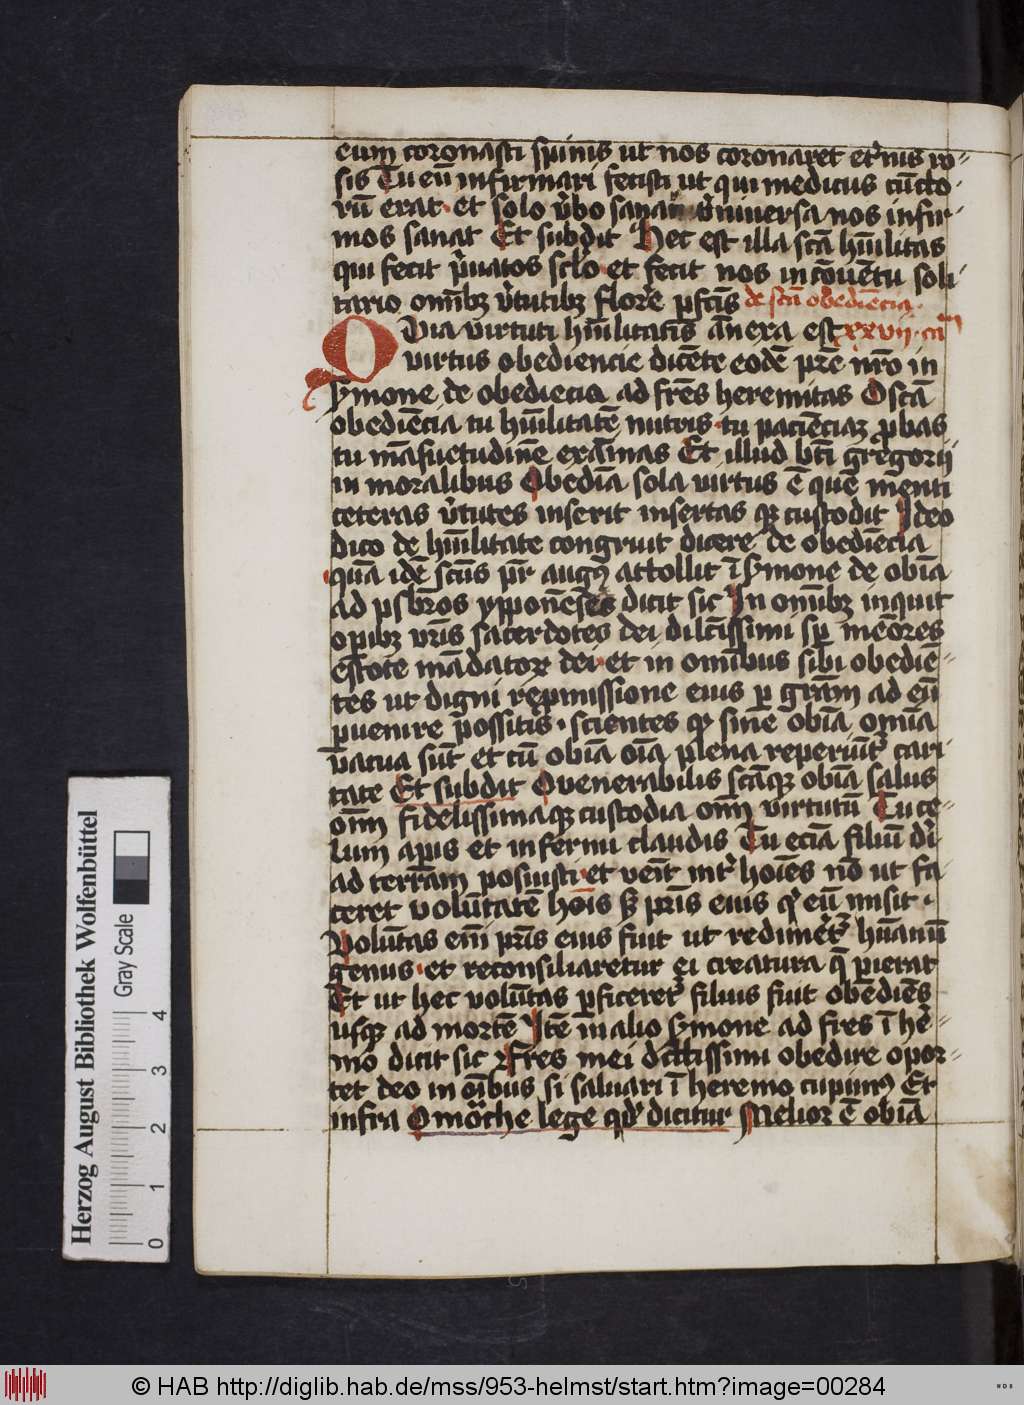 eum coronasti spinis ut nos coronaret et'nis ro=
sis Tu eū infirmari fecisti ut qui medicus cūcto
rū erat et solo v̉bo universa nos infir
mos sanat Et subdit Hec est illa scā hūilitas
qui fecit p̉uatos sclo et fecit nos in cōuētu soli
tario omībꝫ v̉tutibꝫ flor'e pfc̄is de scā obediēcia
Quia virtuti hūilitatis ānexa est xxvii cām
virtus obediencie dicēte eodē pr̄e nr̄o in
s̉mone de obediēcia ad fr̄es heremitas O scā
obediēcia tu hūilitatē nutris tu paciēciaꝫ ꝓbas
tu māsuetudinē exāmas Et illud bt̄i gregorii
in moralibus Obedīa sola virtus ē que mēnti
ceteras v̉tutes inserit insertas qꝫ custodit Ideo
dico de hūilitate congruit dicere de obediēcia
quā idē scūs pr̄ augꝰ attollit ī s̉mone de obīa
ad psbr̄os ypponēses dicit sic In omībꝫ inquit
opibꝫ vr̄is sacerdotes dei dilcīssimi sp̄ memōres
estote mādatoꝝ dei et in omībus sibi obediē=
tes ut digni repmissione eius p grām ad eū
puenire possitis scientes qꝫ sine obīa omīa
vacua sūt et cū obīa oīa plena reperiūt' cari
tate Et subdit O venerabilis scāqꝫ obīa salus
oīm fidelissimaqꝫ custodia oīm virtutū Tu ce=
lum apis et infernū claudis Tu eciā filiū dī
ad terrām posuisti et venīt int' hoīes nō ut fa
ceret volūtatē hoīs sꝫ pr̄is eius q' eū misit
Volūtas eīm pr̄is eius fuit ut redimer̄et' hūanū
genus et reconsiliaretur ei creatura q̄ pierat
Et ut hec volūtas pficeret' filius fuit obēdiēs
usqꝫ ad mortē Itē in alio s̉mone ad fres ī he=
mo dicit sic Fr̄es mei dclīssimi obedire opor=
tet deo in oībus si saluari ī heremo cupimꝰ Et
infra O mōche lege qd' dicitur Melior ē obīa
Herzog August Bibliothek Wolfenbüttel
Gray Scale
0 1 2 3 4
© HAB http://diglib.hab.de/mss/953-helmst/start.htm?image=00284